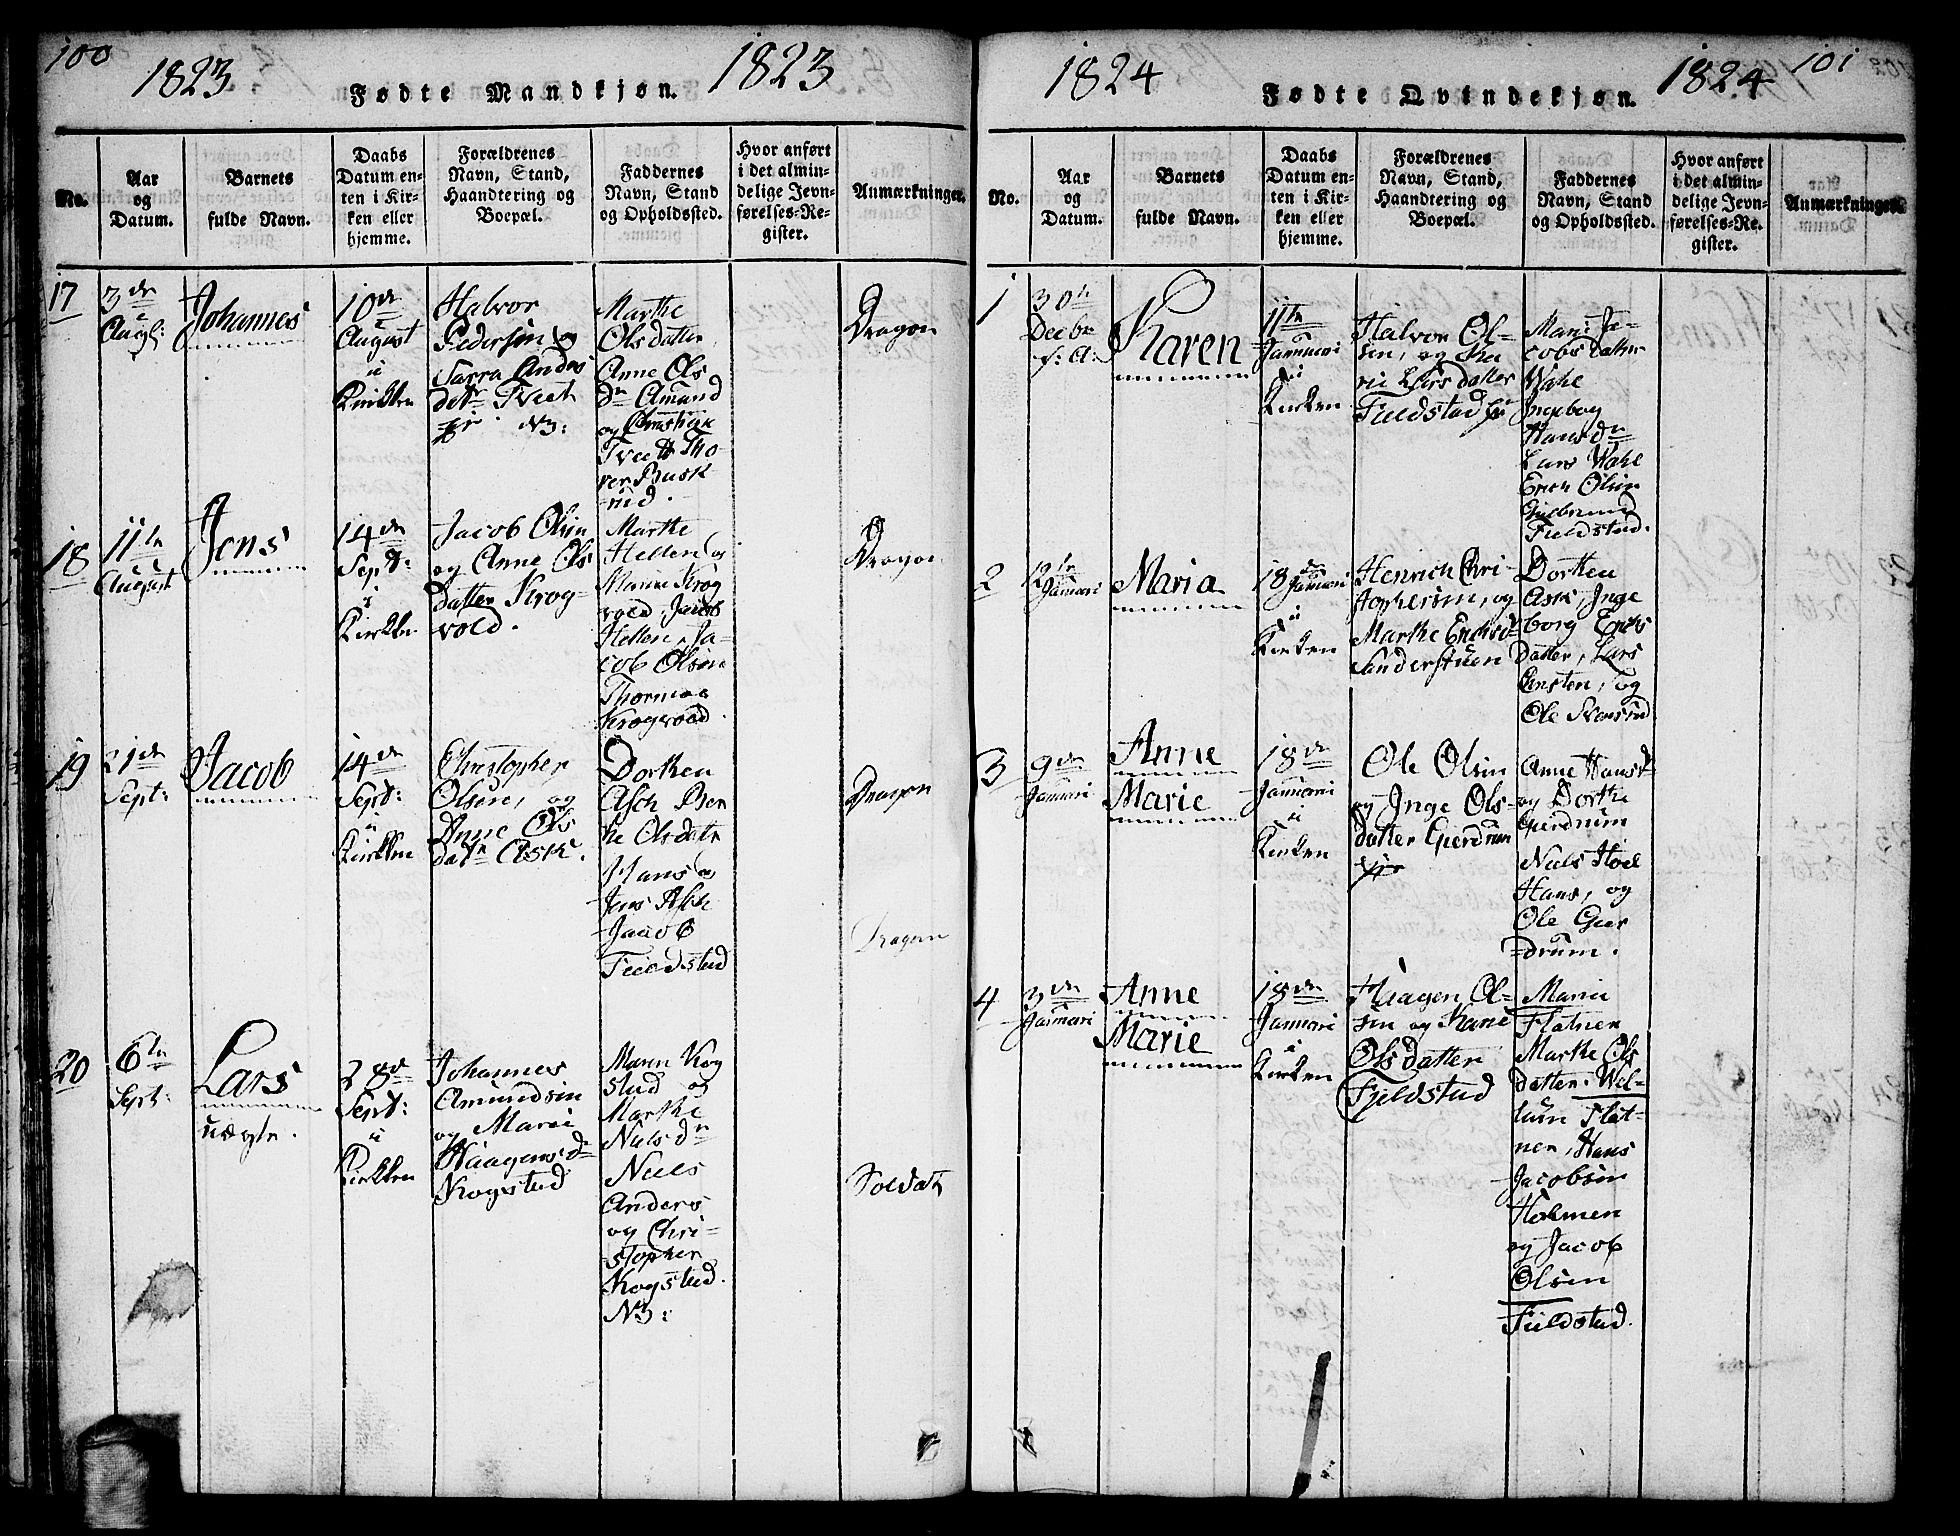 100
1823
Fødte Mandkjøn.
1823
No.
Aar
og
Datum.
Barnets
fulde Navn.
Daabs
Datum en-
ten i Kir-
ken eller
hjemme.
Forældrenes
Navn, Stand,
Haandtering og
Boepæl.
Faddernes
Navn, Stand
og Opholdssted.
Hvor anført
i det almin-
delige Jevn-
førelses-Re-
gister.
Anmærkninger.
17
3de
Augt:
Johannes
10de
August
i
Kirkken
Halvor
Pedersen og
Sarra Anders
datr Tveet
N3:
Marthe
Olsdatter,
Anne Ols
dr Amund
og Christian
Tveet Tho-
rer Busk
rud.
Dragon
18
11te
August
Jens
14de
Sept:
i
Kirkken
Jacob Olsen
og Anne Ols
datter Krog-
vold.
Marthe
Hellen og
Marie Krog
vold, Jacob
Hellen, Ja-
cob Olsen
Thormoe
Krogvold.
Dragon
19
21de
Sept:
Jacob
14de
Sept:
i
Kirkken
Christopher
Olsen, og
Anne Ols
datr Ask.
Dorthea
Asch Ber
the Olsdatr
Hans og
Jens Asch
Jacob
Fieldstad
Dragon
Dragon
20
6te
Sept:
Lars
uægte.
28de
Sept:
i
Kirkken
Johannes
Amundsen
og Marie
Haagensdr
Kogstad
Maren Kog
stad og
Marthe
Nielsdr
Niels
Anders
og Chri-
stopher
Kogstad.
N3:
Soldat
1824
Fødte Qvindekjøn.
1824
101
No.
Aar
og
Datum.
Barnets
fulde Navn.
Daabs
Datum en-
ten i Kir-
ken eller
hjemme.
Forældrenes
Navn, Stand,
Haandtering og
Boepæl.
Faddernes
Navn, Stand
og Opholdssted.
Hvor anført
i det almin-
delige Jevn-
førelses-Re-
gister.
Anmærkninger.
1
30te
Decbr
f: A:
Karen
11te
Januari
i
Kirken
Halvor Ol-
sen, og Ka
rie Larsdatter
Fieldstad
Mari Ja-
cobsdatter
Wahl
Ingebog
Hansdr
Lars Wahl
Erich Olsen
Gulbrand
Fieldstad.
2
12te
Januari
Maria
18de
Januari
i
Kirken
Henrich Chri-
stophersen, og
Marthe Erichsd
Sanderstuen
Dorthea
Ask, Inge
borg Erichs
datter, Lars
Ensten, og
Ole Svensrud
3
9de
Januari
Anne
Marie
18de
Januari
i
Kirken
Ole Olsen
og Inge Ols-
datter Gierdrum
Anne Hansd
og Dorthe
Gierdrum
Niels Hoel
Hans, og
Ole Gier
drum.
4
3de
Januari
Anne
Marie
18de
Januari
i
Kirken
Haagen Ol-
sen og Karie
Olsdatter
Fjeldstad
Maria
Flatner
Marthe Ols
datter. Wil-
lum Flat-
ner, Hans
Jacobsen
Holmen
og Jacob
Olsen
Fieldstad.